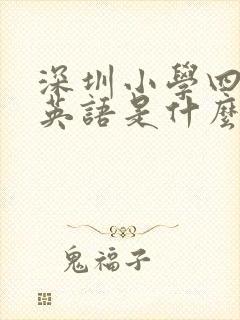 深圳小學四
英語是什麼
鬼福子